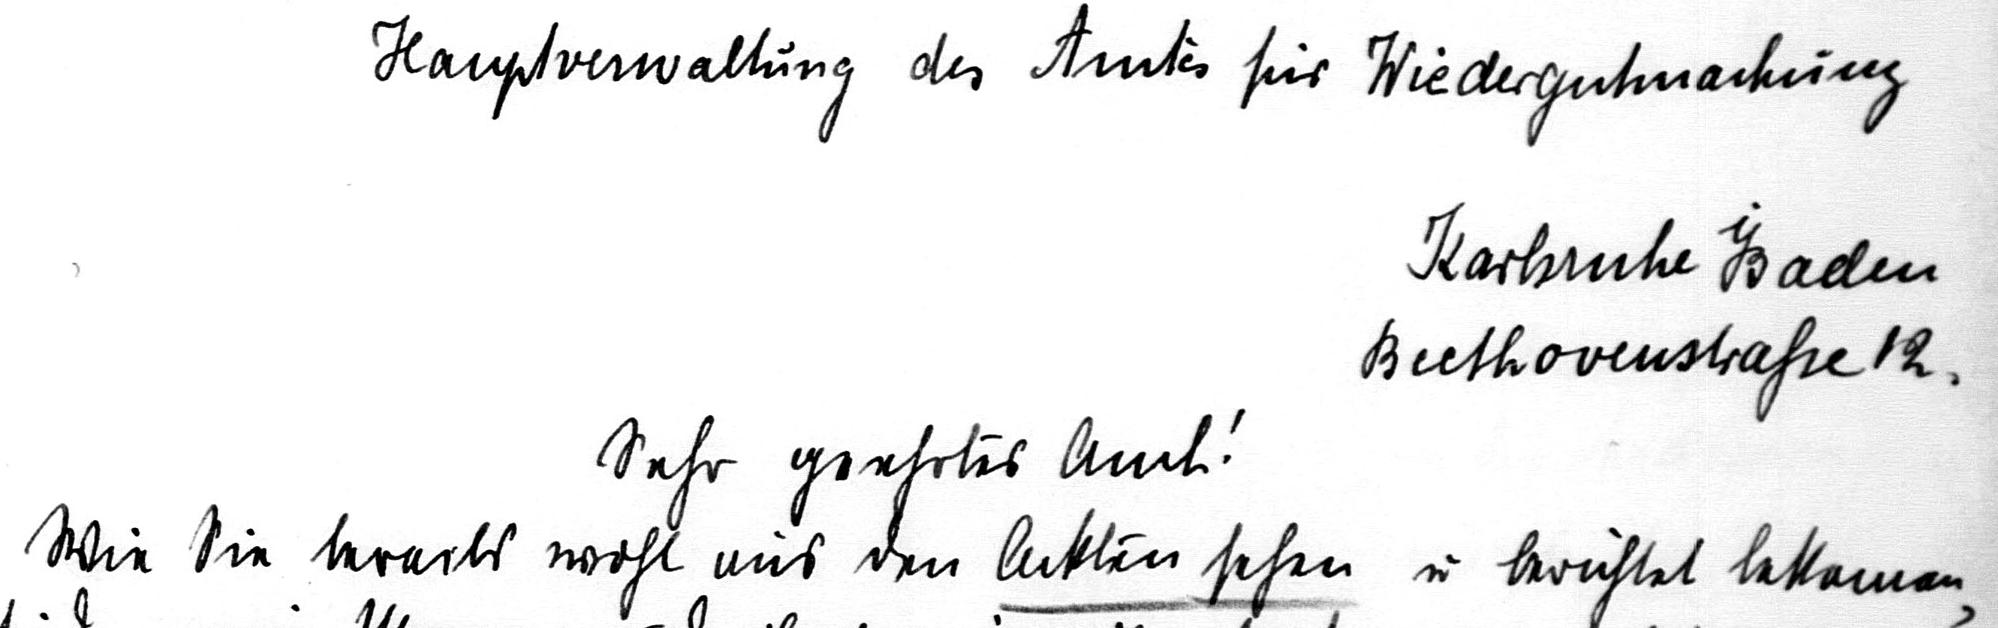 Hauptverwaltung des Amtes für Wiedergutmachung
Karlsruhe i/Baden
Beethovenstraße 12.
Sehr geehrtes Amt!
Wie Sie bereits wohl aus den Ackten sehen u berichtet bekkomen,